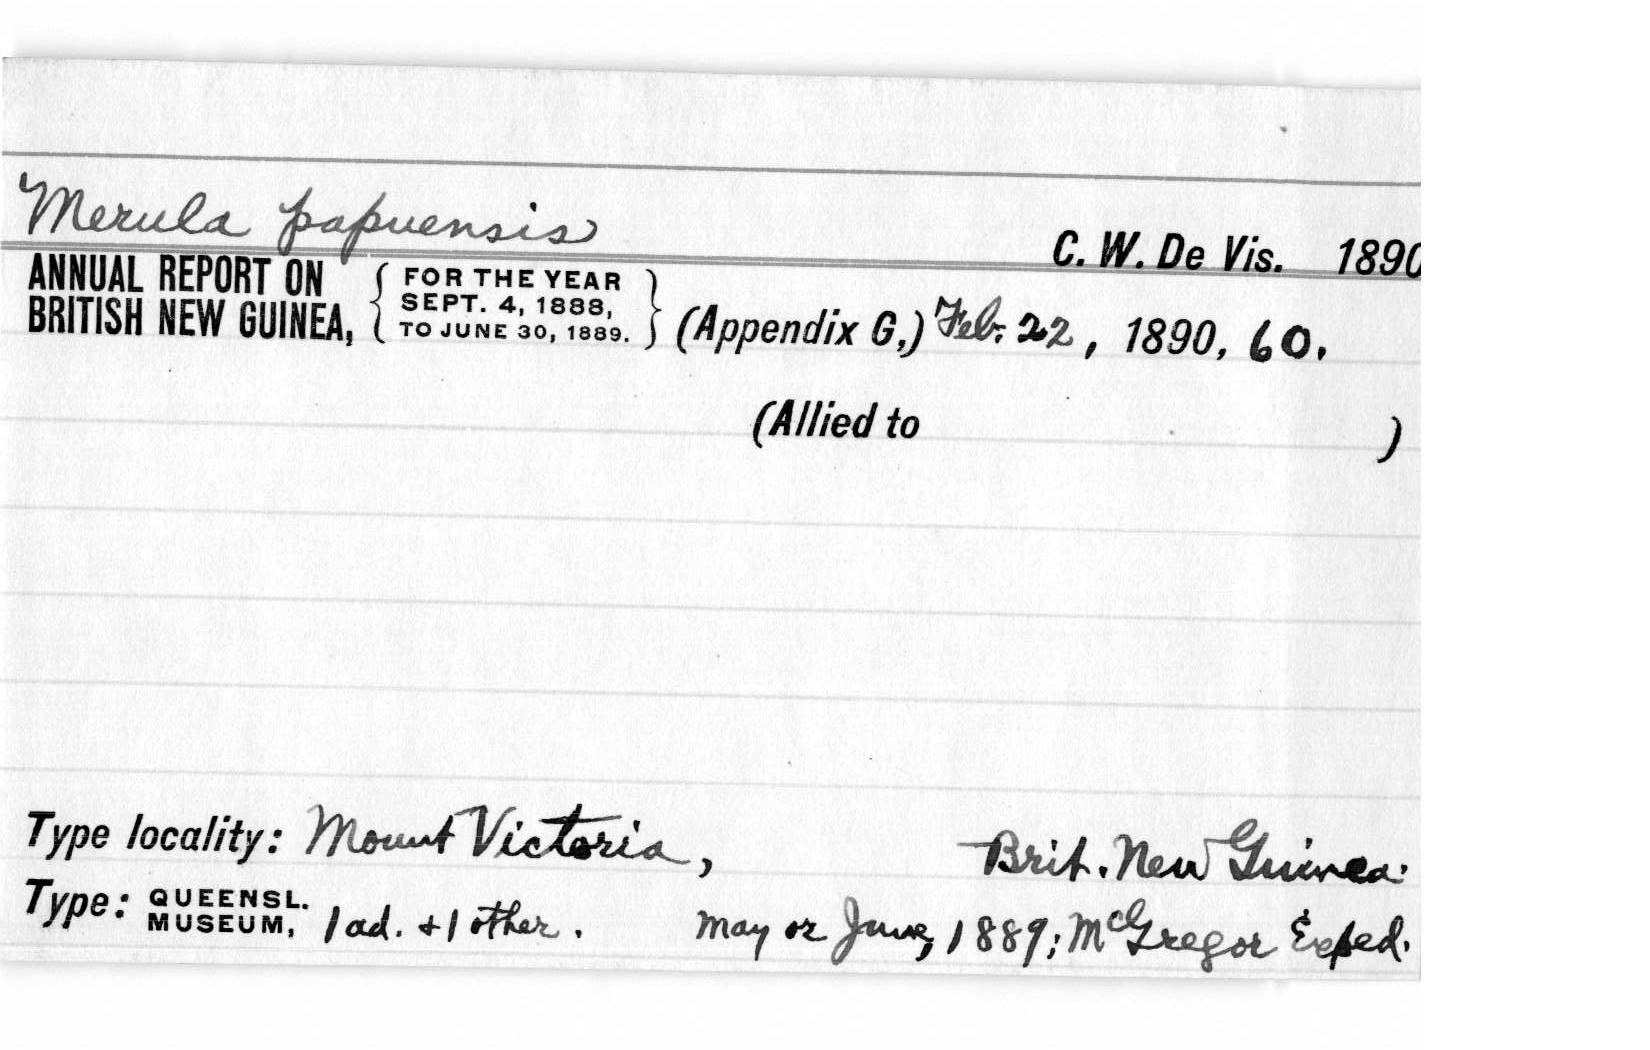 Merula papuensis
C. W. De Vis. 1890
ANNUAL REPORT ON BRITISH NEW GUINEA, { FOR THE YEAR SEPT. 4, 1888, TO JUNE 30, 1889. } (Appendix G,) Feb. 22, 1890, 60.
(Allied to )
Type locality: Mount Victoria, Brit. New Guinea.
Type: QUEENSL. MUSEUM, 1 ad. + 1 other. May or June, 1889; McGregor Exped.